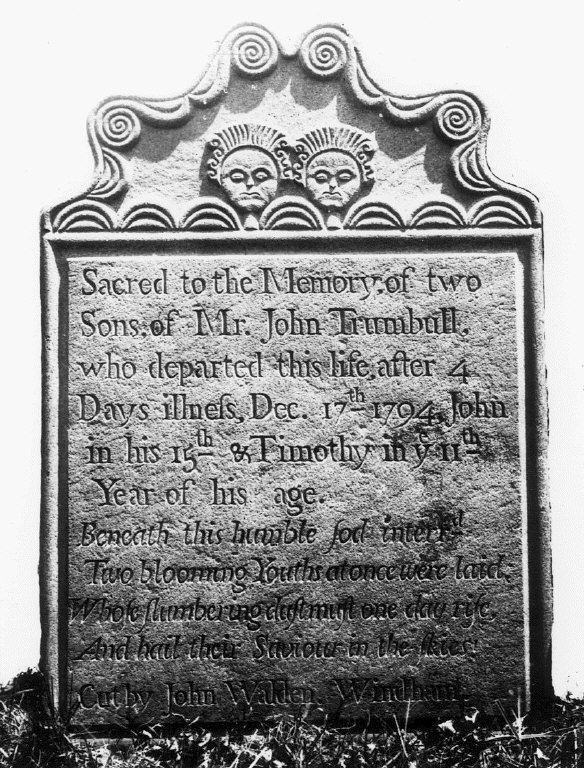 Sacred to the Memory, of two
Sons, of Mr. John Trumbull,
who departed this life, after 4
Days illneſs, Dec. 17th 1794, John
in his 15th & Timothy in ye 11th
Year of his age.
Beneath this humble ſod inter'd
Two blooming Youths at once were laid,
Whoſe ſlumbering duſt muſt one day riſe,
And hail their Saviour in the ſkies.
Cut by John Walden, Windham.